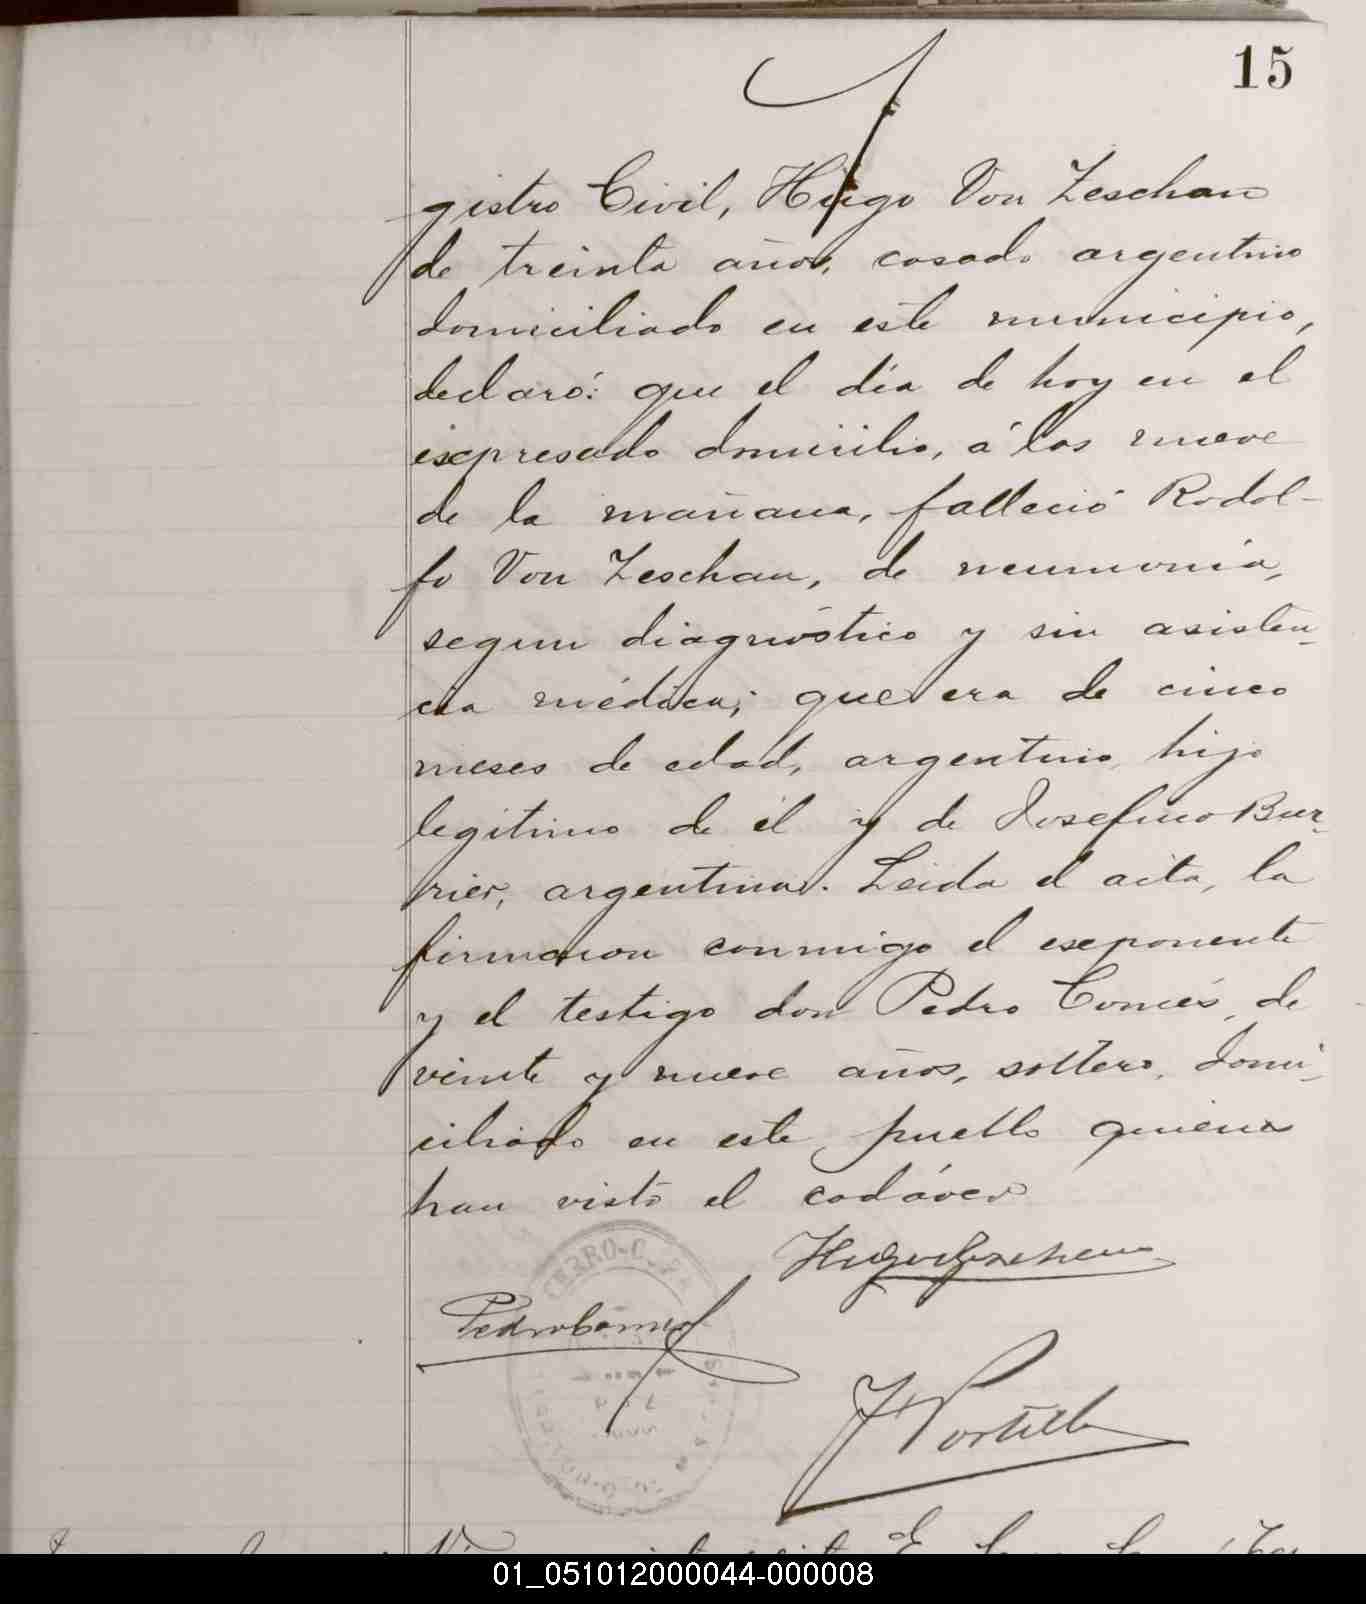 15
gistro Civil, Hugo Von Zeschau
de treinta años, casado argentino
domiciliado en este municipio,
declaró: que el día de hoy en el
expresado domicilio, á las nueve
de la mañana, falleció Rodol-
fo Von Zeschau, de neumonía,
segun diagnóstico y sin asisten-
cia médica; que era de cinco
meses de edad, argentino, hijo
legitimo de él y de Josefina Bur-
rier, argentina. Leida el acta, la
firmaron conmigo el exponente
y el testigo don Pedro Comés, de
veinte y nueve años, soltero, domi-
ciliado en este pueblo quienes
han visto el cadáver
Hugo v Zeschau
Pedro Comes
J Portill
01_051012000044-000008